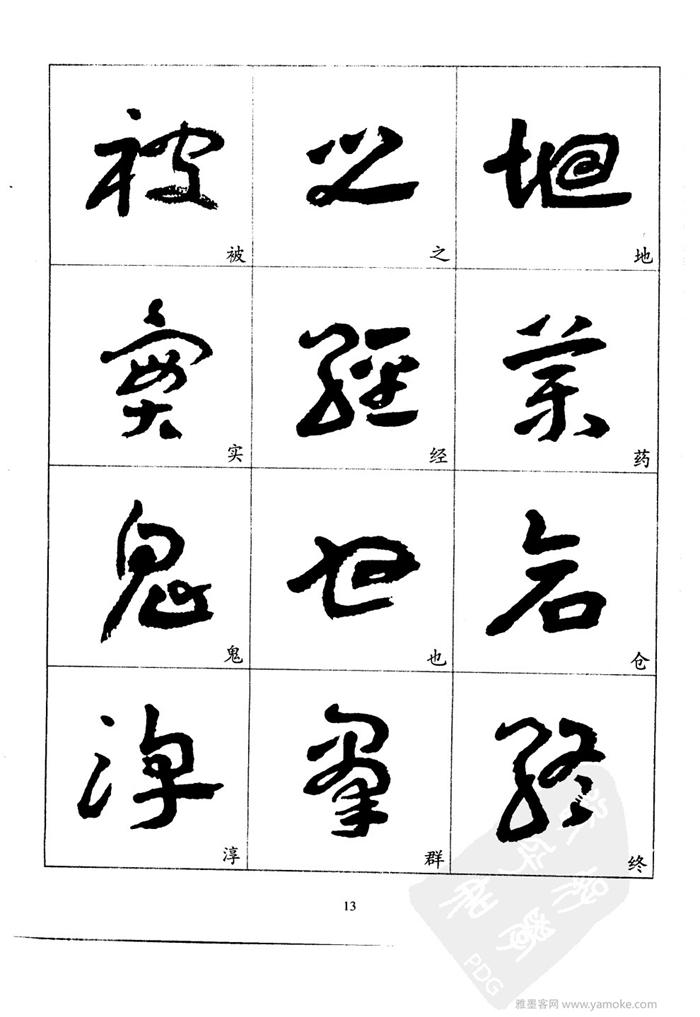 地
地
藥
药
倉
仓
終
终
之
之
經
经
也
也
羣
群
被
被
實
实
鬼
鬼
淳
淳
13
PDG
雅墨客网 www.yamoke.com